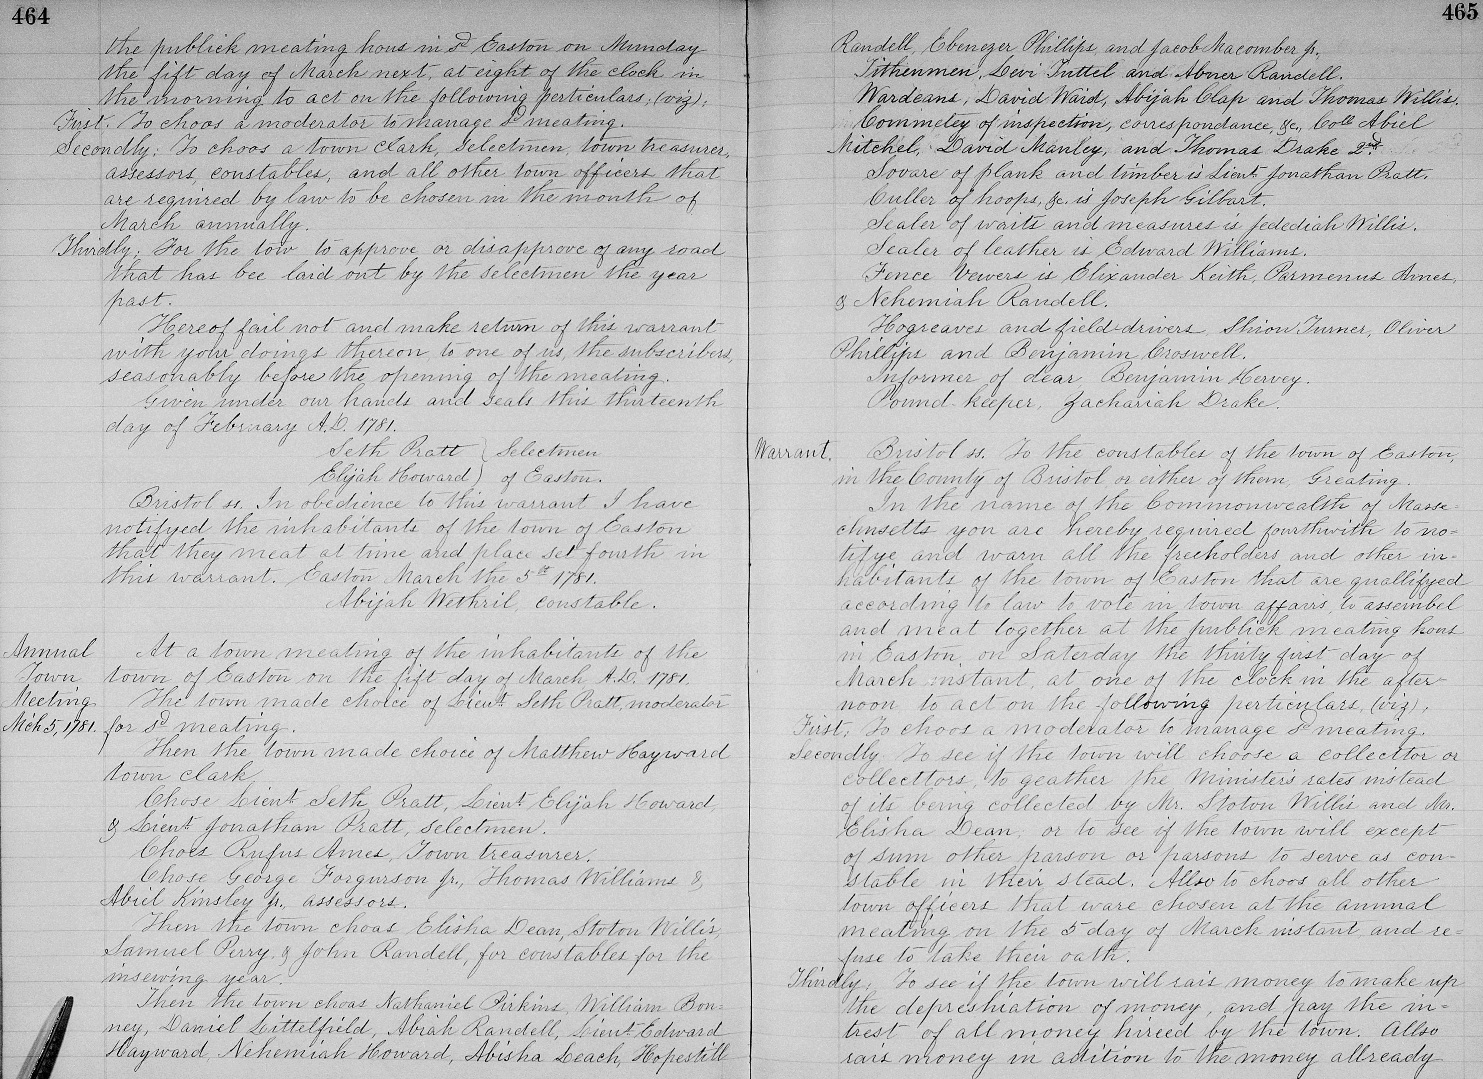 464
the publick meating hous in sd Easton on Munday
the fift day of March next, at eight of the clock in
the morning to act on the following perticulars, (viz);
First. To choos a moderator to manage sd meating.
Secondly: To choos a town clark, Selectmen, town treasurer,
assessors, constables, and all other town officers that
are required by law to be chosen in the month of
March annually.
Thirdly: For the tow to approve or disapprove of any road
that has bee laid out by the selectmen the year
past.
Hereof fail not and make return of this warrant
with your doings thereon, to one of us, the subscribers,
seasonably before the opening of the meating.
Given under our hands and seals this thirteenth
day of February A.D. 1781.
Seth Pratt } Selectmen
Elijah Howard } of Easton.
Bristol ss. In obedience to this warrant I have
notifyed the inhabitants of the town of Easton
that they meat at time and place set fourth in
this warrant. Easton March the 5th 1781.
Abijah Wethril, constable.
Annual
Town
Meeting
Mch 5, 1781.
At a town meating of the inhabitants of the
town of Easton on the fift day of March A.D. 1781.
The town made choice of Lieut Seth Pratt, moderator
for sd meating.
Then the town made choice of Matthew Hayward
town clark
Chose Lieut Seth Pratt, Lieut Elijah Howard,
& Lieut Jonathan Pratt, selectmen.
Choes Rufus Ames, Town treasurer.
Chose George Forgurson Jr., Thomas Williams &
Abiel Kinsley Jr., assessors.
Then the town choas Elisha Dean, Stoton Willis,
Samuel Perry & John Randell, for constables for the
insewing year.
Then the town choas Nathaniel Pirkins, William Bon-
ney, Daniel Littelfield, Abiah Randell, Lieut Edward
Hayward, Nehemiah Howard, Abisha Leach, Hopestill
465
Randell, Ebenezer Phillips, and Jacob Macomber Jr,
Tithenmen, Levi Tuttel and Abner Randell.
Wardeans, David Waid, Abijah Clap and Thomas Willis.
Commetey of inspection, correspondance, &c., Coll Abiel
Mitchel, David Manley, and Thomas Drake 2nd.
Sovare of plank and timber is Lieut Jonathan Pratt.
Culler of hoops, &c. is Joseph Gilbart.
Sealer of waits and measures is Jedediah Willis.
Sealer of leather is Edward Williams.
Fence vewers is Elixander Keith, Parmenus Ames,
& Nehemiah Randell.
Hogreaves and field-drivers, Shion Turner, Oliver
Phillips and Benjamin Croswell.
Informer of dear, Benjamin Hervey.
Pound-keeper, Zachariah Drake.
Warrant.
Bristol ss. To the constables of the town of Easton,
in the County of Bristol or either of them, Greating.
In the name of the Commonwealth of Masse-
chusetts you are hereby required fourthwith to no-
tifye and warn all the freeholders and other in-
habitants of the town of Easton that are quallifyed
according to law to vote in town affairs, to assembel
and meat together at the publick meating hous
in Easton, on Saterday the thirty first day of
March instant, at one of the clock in the after-
noon to act on the following perticulars, (viz),
First; To choos a moderator to manage sd meating.
Secondly To see if the town will choose a collecttor or
collecttors, to geather the Minister's rates instead
of its being collected by Mr. Stoton Willis and Mr.
Elisha Dean; or to see if the town will except
of sum other parson or parsons to serve as con-
stable in their stead. Allso to choos all other
town officers that ware chosen at the annual
meating on the 5 day of March instant, and re-
fuse to take their oath.
Thirdly; To see if the town will rais money to make up
the depreshiation of money, and pay the in-
trest of all money hireed by the town. Allso
rais money in adition to the money allready